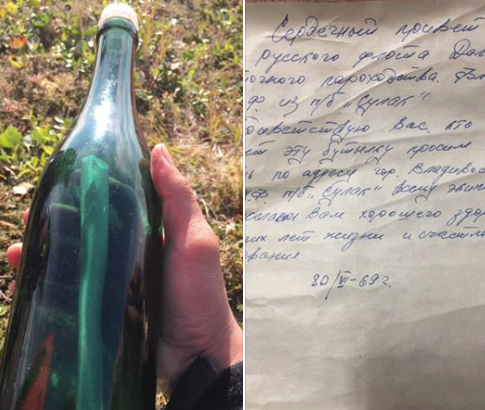 Сердечный привет
русского флота Дал
точного пароходства. Вл
из п/б „Сулак"
Вас, кто
ет эту бутылку просим
ь по адресу гор. Владивос
п/б „Сулак" всему экип
Вам хорошего здор
гих лет жизни и счастли
вания
20/VI-69г.